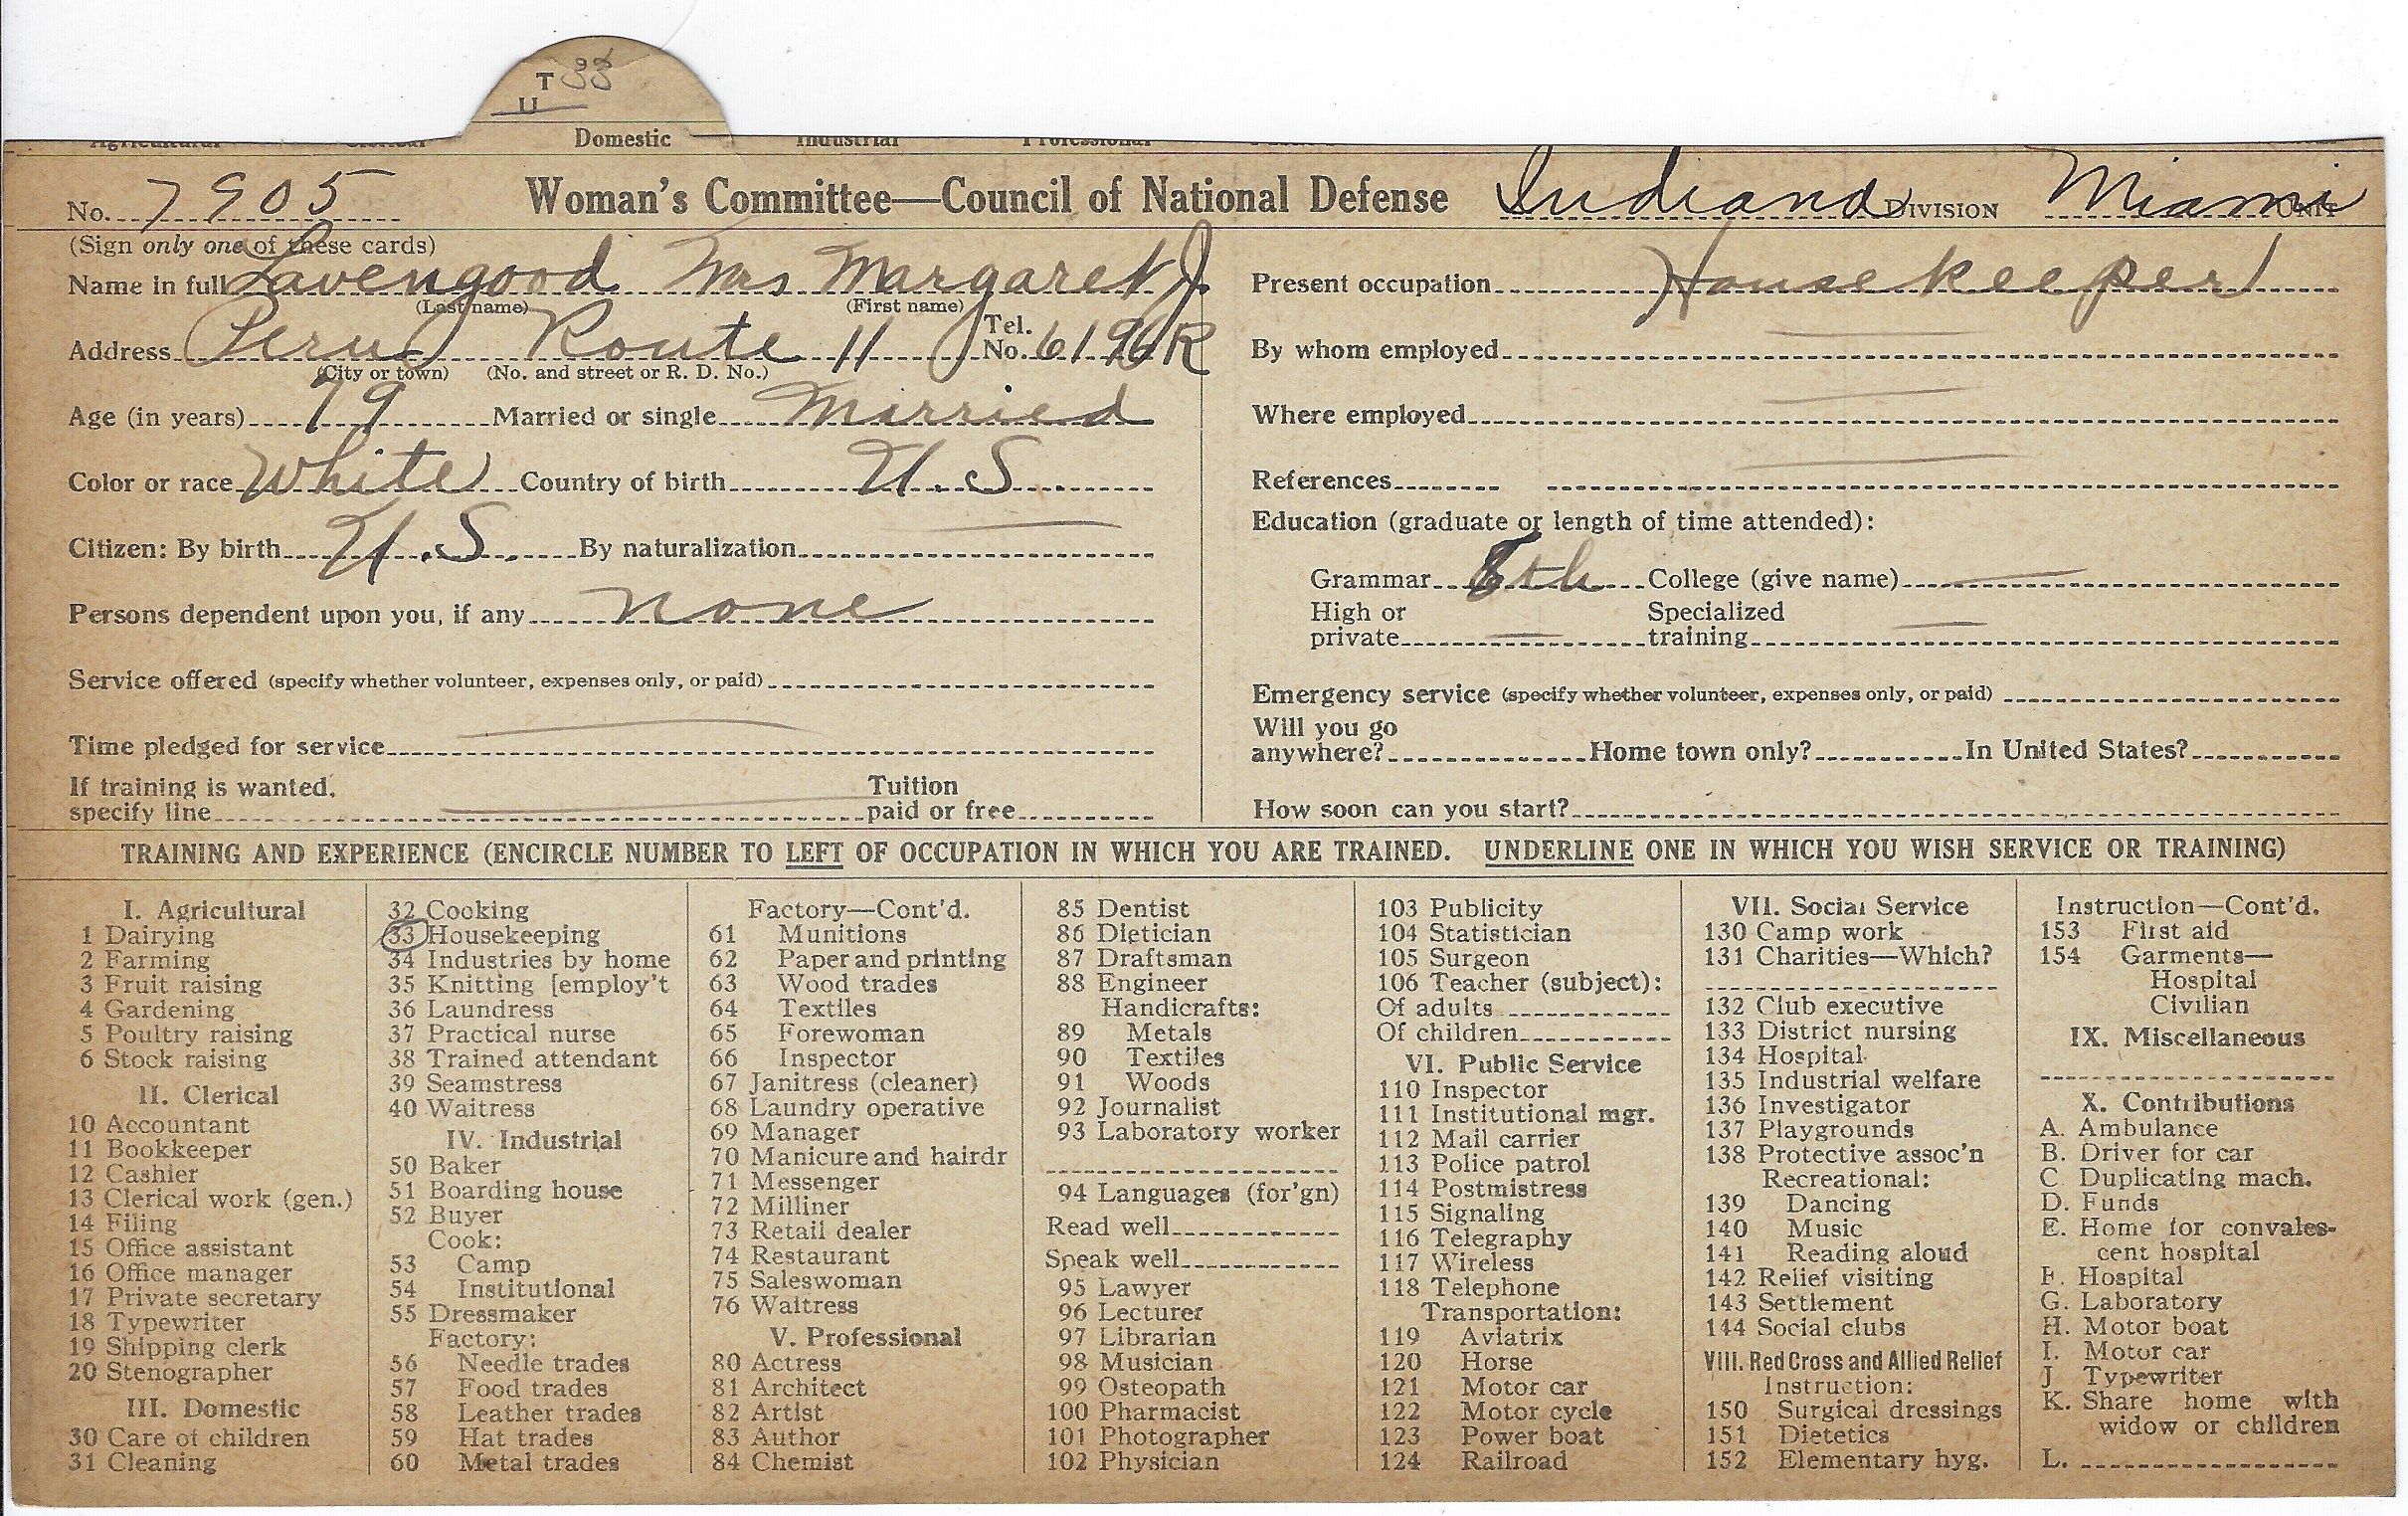 T 33
U
Domestic
No. 7905
Woman's Committee—Council of National Defense
Indiana DIVISION Miami UNIT
(Sign only one of these cards)
Name in full Lavengood Mrs Margaret J.
(Last name) (First name)
Address Peru Route 11 Tel. No. 6196R
(City or town) (No. and street or R. D. No.)
Age (in years) 79 Married or single Married
Color or race White Country of birth U.S.
Citizen: By birth U.S. By naturalization
Persons dependent upon you, if any none
Service offered (specify whether volunteer, expenses only, or paid)
Time pledged for service
If training is wanted, specify line Tuition paid or free
Present occupation Housekeeper
By whom employed
Where employed
References
Education (graduate or length of time attended):
Grammar 8th College (give name)
High or private Specialized training
Emergency service (specify whether volunteer, expenses only, or paid)
Will you go anywhere? Home town only? In United States?
How soon can you start?
TRAINING AND EXPERIENCE (ENCIRCLE NUMBER TO LEFT OF OCCUPATION IN WHICH YOU ARE TRAINED. UNDERLINE ONE IN WHICH YOU WISH SERVICE OR TRAINING)
I. Agricultural
1 Dairying
2 Farming
3 Fruit raising
4 Gardening
5 Poultry raising
6 Stock raising
II. Clerical
10 Accountant
11 Bookkeeper
12 Cashier
13 Clerical work (gen.)
14 Filing
15 Office assistant
16 Office manager
17 Private secretary
18 Typewriter
19 Shipping clerk
20 Stenographer
III. Domestic
30 Care of children
31 Cleaning
32 Cooking
33 Housekeeping
34 Industries by home
35 Knitting [employ't
36 Laundress
37 Practical nurse
38 Trained attendant
39 Seamstress
40 Waitress
IV. Industrial
50 Baker
51 Boarding house
52 Buyer
Cook:
53 Camp
54 Institutional
55 Dressmaker
Factory:
56 Needle trades
57 Food trades
58 Leather trades
59 Hat trades
60 Metal trades
Factory—Cont'd.
61 Munitions
62 Paper and printing
63 Wood trades
64 Textiles
65 Forewoman
66 Inspector
67 Janitress (cleaner)
68 Laundry operative
69 Manager
70 Manicure and hairdr
71 Messenger
72 Milliner
73 Retail dealer
74 Restaurant
75 Saleswoman
76 Waitress
V. Professional
80 Actress
81 Architect
82 Artist
83 Author
84 Chemist
85 Dentist
86 Dietician
87 Draftsman
88 Engineer
Handicrafts:
89 Metals
90 Textiles
91 Woods
92 Journalist
93 Laboratory worker
94 Languages (for'gn)
Read well
Speak well
95 Lawyer
96 Lecturer
97 Librarian
98 Musician
99 Osteopath
100 Pharmacist
101 Photographer
102 Physician
103 Publicity
104 Statistician
105 Surgeon
106 Teacher (subject):
Of adults
Of children
VI. Public Service
110 Inspector
111 Institutional mgr.
112 Mail carrier
113 Police patrol
114 Postmistress
115 Signaling
116 Telegraphy
117 Wireless
118 Telephone
Transportation:
119 Aviatrix
120 Horse
121 Motor car
122 Motor cycle
123 Power boat
124 Railroad
VII. Social Service
130 Camp work
131 Charities—Which?
132 Club executive
133 District nursing
134 Hospital
135 Industrial welfare
136 Investigator
137 Playgrounds
138 Protective assoc'n
Recreational:
139 Dancing
140 Music
141 Reading aloud
142 Relief visiting
143 Settlement
144 Social clubs
VIII. Red Cross and Allied Relief
Instruction:
150 Surgical dressings
151 Dietetics
152 Elementary hyg.
Instruction—Cont'd.
153 First aid
154 Garments—
Hospital
Civilian
IX. Miscellaneous
X. Contributions
A. Ambulance
B. Driver for car
C Duplicating mach.
D. Funds
E. Home for convales-
cent hospital
F. Hospital
G. Laboratory
H. Motor boat
I. Motor car
J Typewriter
K. Share home with
widow or children
L.